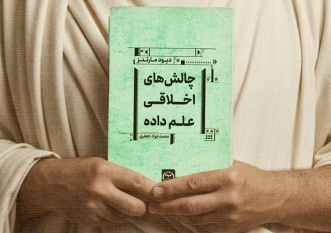 دیوید مارتنز
چالش‌های
اخلاقی
علم داده
محمدجواد جعفری